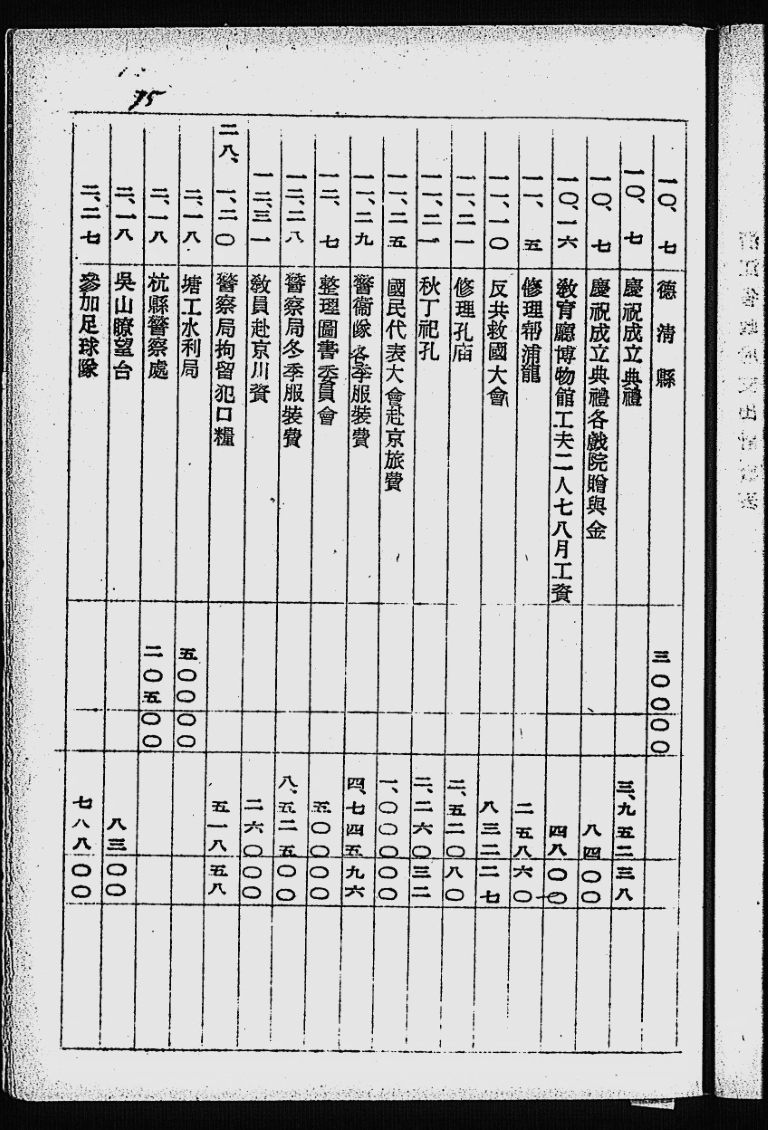 75
一〇、七 德清縣 三〇〇〇〇
一〇、七 慶祝成立典禮 三、九五二三八
一〇、七 慶祝成立典禮各戲院贈與金 八四〇〇
一〇、一六 教育廳博物館工夫二人七八月工資 四八〇〇
一一、五 修理鄣浦龍 二五八六〇
一一、一〇 反共救國大會 八三二二七
一一、二一 修理孔庙 二、五二〇八〇
一一、二一 秋丁祀孔 二、二六〇三二
一一、二五 國民代表大會赴京旅費 一、〇〇〇〇〇
一一、二九 警衛隊冬季服裝費 四、七四五九六
一二、七 整理圖書委員會 五〇〇〇〇
一二、二八 警察局冬季服裝費 八、五二五〇〇
一二、三一 教員赴京川資 二六〇〇〇
二八、一、二〇 警察局拘留犯口糧 五一八五八
二、一八 塘工水利局 五〇〇〇〇
二、一八 杭縣警察處 二〇五〇〇
二、一八 吳山瞭望台 八三〇〇
二、二七 參加足球隊 七八八〇〇